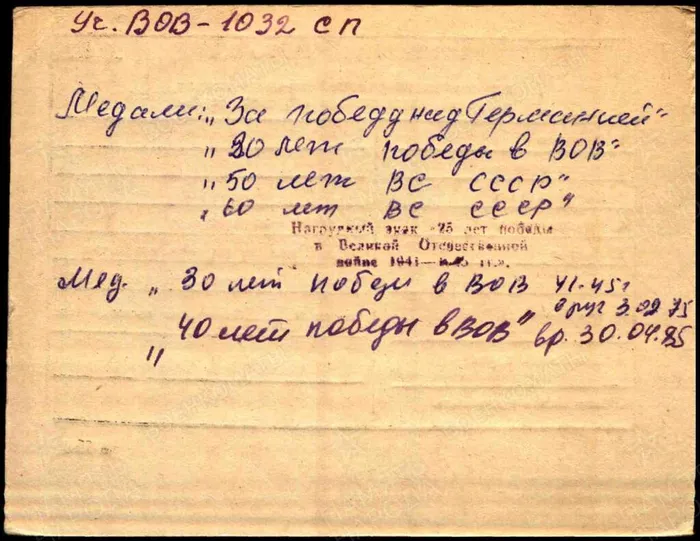 Уч. ВОВ - 1032 СП
Медали: „За победу над Германией"
„20 лет победы в ВОВ"
„50 лет ВС СССР"
„60 лет ВС СССР"
Нагрудный знак «25 лет победы
в Великой Отечественной
войне 1941—1945 гг.».
Мед. „30 лет победы в ВОВ 41-45г
3.02.75
„40 лет победы в ВОВ" вр. 30.04.85